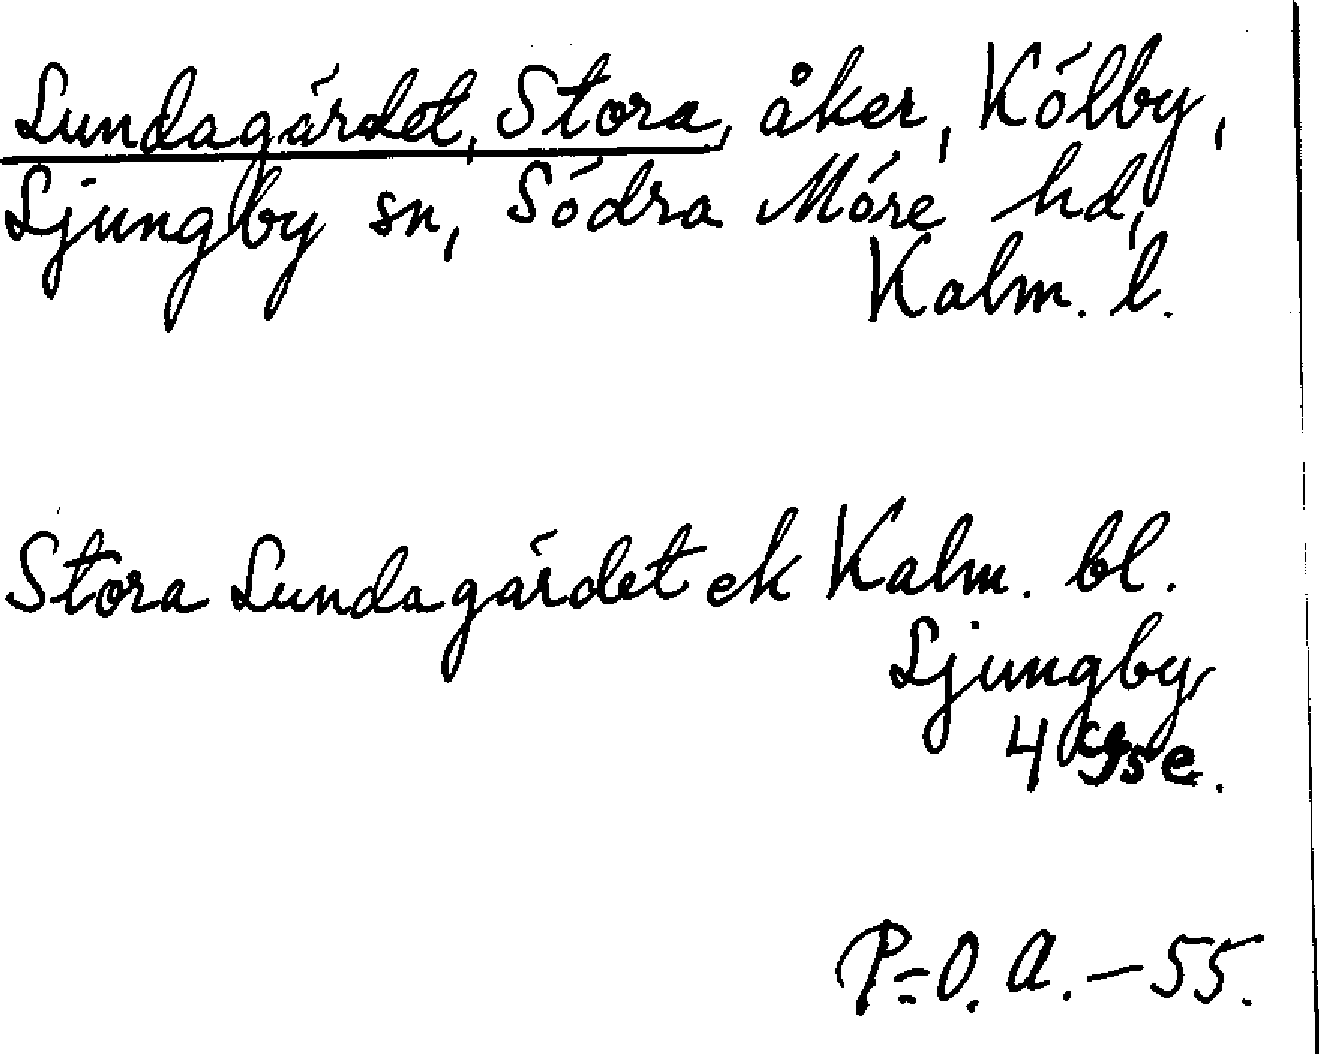 Lundagärdet, Stora, åker, Kölby,
Ljungby sn, Södra Möre hd,
Kalm. l.
Stora Lundagärdet ek Kalm. bl.
Ljungby
4 se.
P-O. A. - 55.